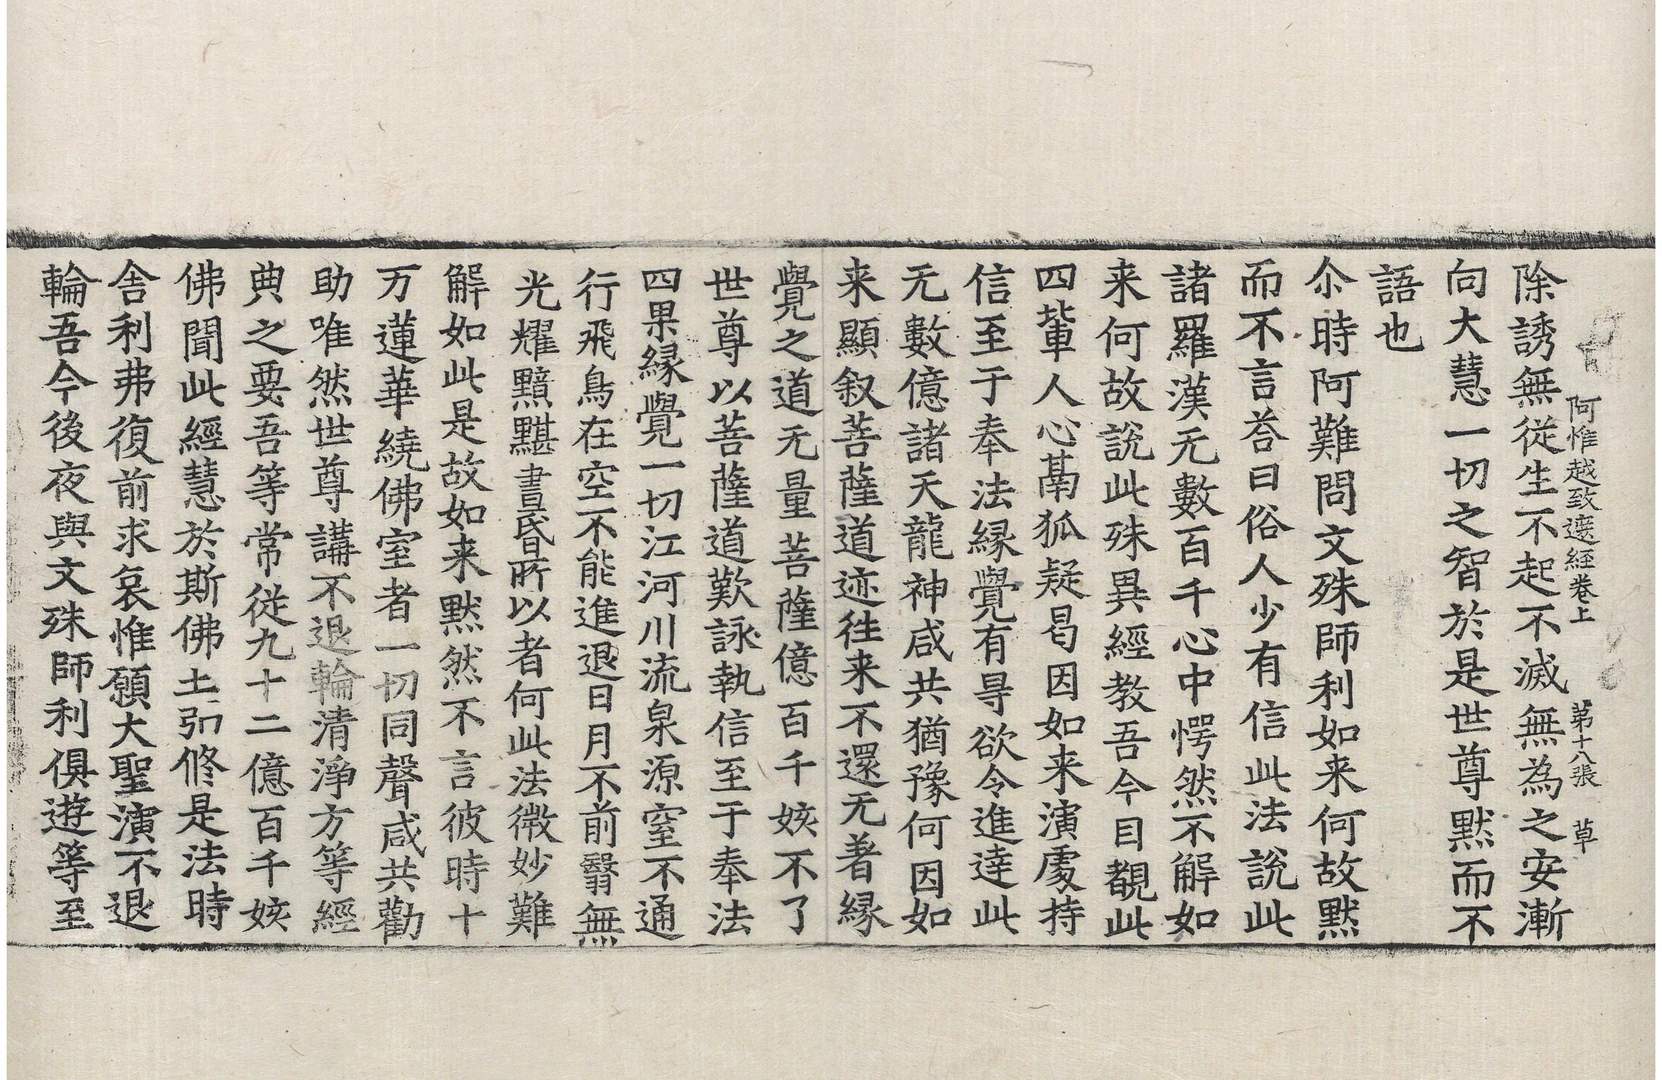 阿惟越致遮經卷上　第十八張　草
除誘無從生不起不滅無為之安漸
向大慧一切之智於是世尊默而不
語也
尒時阿難問文殊師利如来何故默
而不言荅曰俗人少有信此法說此
諸羅漢无數百千心中愕然不解如
来何故說此殊異經教吾今目覩此
四輩人心𢇮狐疑曷因如来演處持
信至于奉法緣覺有㝵欲令進達此
无數億諸天龍神咸共猶豫何因如
来顯叙菩薩道迹徃来不還无著緣
覺之道无量菩薩億百千姟不了
世尊以菩薩道歎詠執信至于奉法
四果緣覺一切江河川流泉源窒不通
行飛鳥在空不能進退日月不前翳無
光耀黤黮晝昏所以者何此法微妙難
解如此是故如来默然不言彼時十
万蓮華繞佛室者一切同聲咸共勸
助唯然世尊講不退輪清淨方等經
典之要吾等常從九十二億百千姟
佛聞此經慧於斯佛土㢧修是法時
舍利弗復前求哀惟願大聖演不退
輪吾今後夜與文殊師利俱遊等至